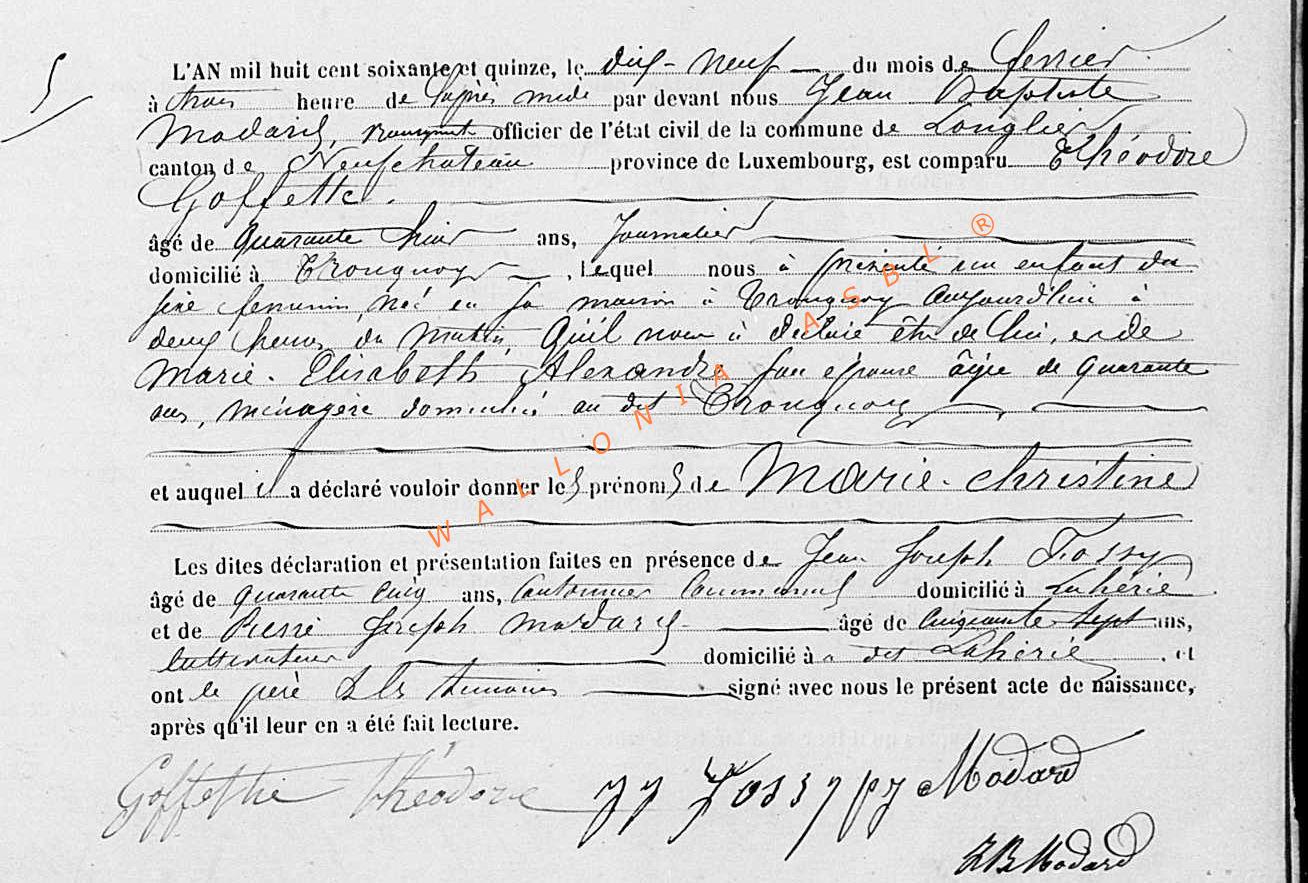 5
L'AN mil huit cent soixante et quinze, le dix-neuf du mois de février
à trois heure de l'après midi par devant nous Jean Baptiste
Modard, officier de l'état civil de la commune de Longlier
canton de Neufchateau province de Luxembourg, est comparu Théodore
Goffette.
âgé de quarante huit ans, Journalier
domicilié à Tronquoy, lequel nous à présenté un enfant du
sexe féminin, né en sa maison à Tronquoy aujourd'hui à
deux heures du matin, qu'il nous à déclaré être de lui, et de
Marie-Elisabeth Alexandre son épouse âgée de quarante
ans, ménagère domicilié au dit Tronquoy,
et auquel il a déclaré vouloir donner les prénoms de Marie-Christine
Les dites déclaration et présentation faites en présence de Jean Joseph Fossy
âgé de quarante cinq ans, cantonnier communal domicilié à Lahérie
et de Pierre Joseph Modard âgé de cinquante sept ans,
cultivateur domicilié à dit Lahérie, et
ont le père & les témoins signé avec nous le présent acte de naissance,
après qu'il leur en a été fait lecture.
Goffette Théodore JJ Fossy PJ Modard
JB Modard
WALLONIA ASBL ®